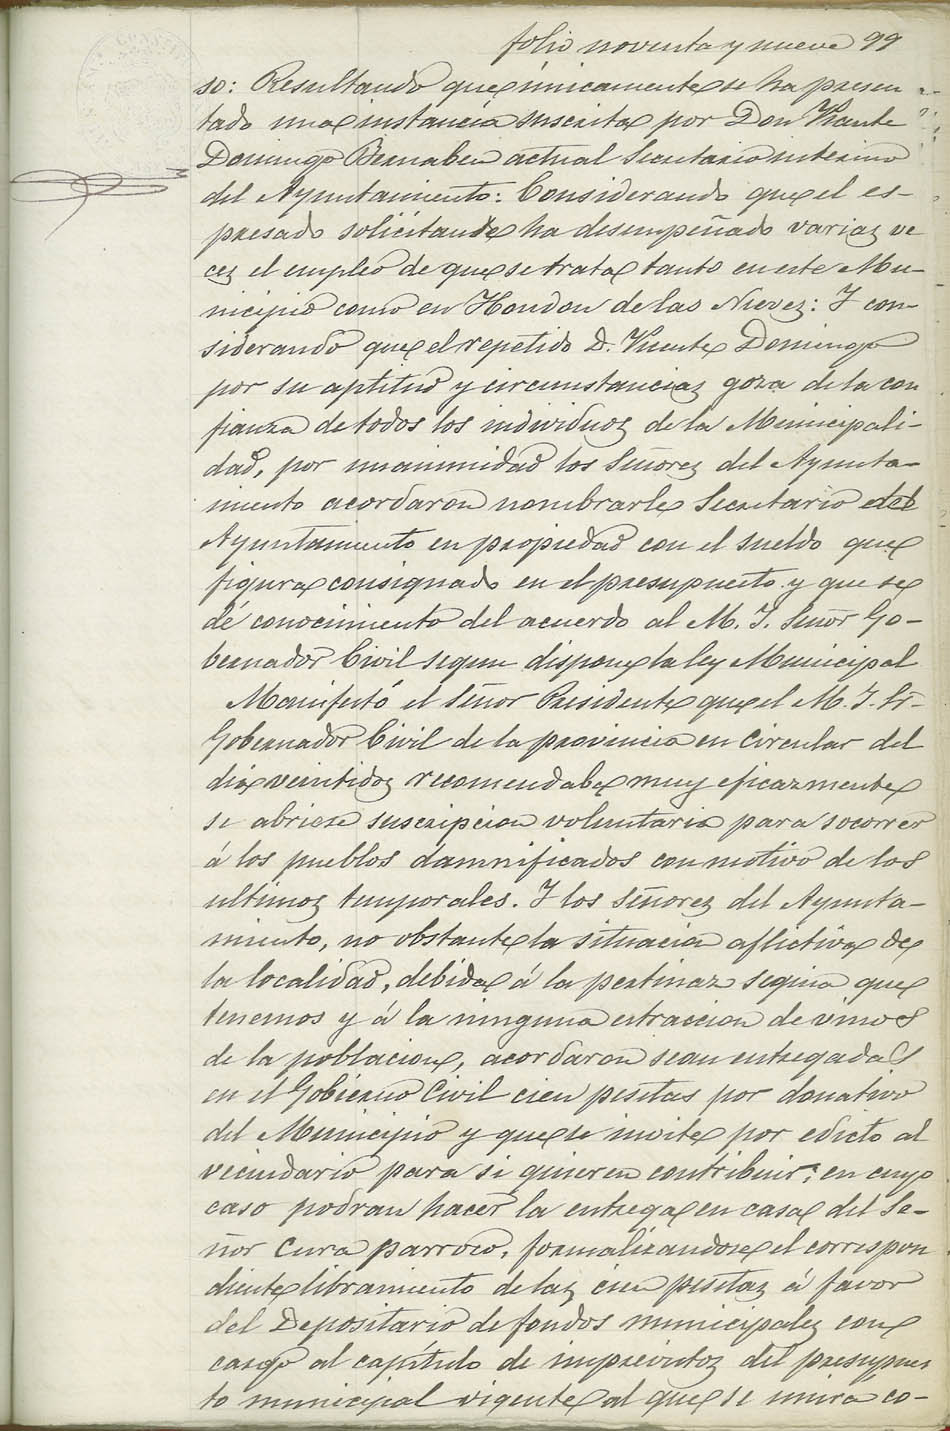 folio noventa y nueve 99
so: Resultando que únicamente se ha presen
tado una instancia suscrita por Don Vicente
Domingo Bernabeu actual Secretario interino
del Ayuntamiento: Considerando que el es-
presado solicitante ha desempeñado varias ve
ces el empleo de que se trata tanto en este Mu-
nicipio como en Hondon de las Nieves: Y con-
siderando que el repetido D. Vicente Domingo
por su aptitud y circunstancias goza de la con
fianza de todos los individuos de la Municipali-
dad, por unanimidad los Señores del Ayunta-
miento acordaron nombrarle Secretario del
Ayuntamiento en propiedad con el sueldo que
figura consignado en el presupuesto y que se
dé conocimiento del acuerdo al M. I. Señor Go-
bernador Civil segun dispone la ley Municipal
Manifestó el Señor Presidente que el M. I. Sr.
Gobernador Civil de la provincia en circular del
dia veintidos recomendaba muy eficazmente
se abriese suscripcion voluntaria para socorrer
á los pueblos damnificados con motivo de los
ultimos temporales. Y los Señores del Ayunta-
miento, no obstante la situacion aflictiva de
la localidad, debida á la pertinaz sequia que
tenemos y á la ninguna estraccion de vinos
de la poblacion, acordaron sean entregadas
en el Gobierno Civil cien pesetas por donativo
del Municipio y que se invite por edicto al
vecindario para si quieren contribuir; en cuyo
caso podran hacer la entrega en casa del Se-
ñor Cura párroco, formalizandose el correspon
diente libramiento de las cien pesetas á favor
del Depositario de fondos municipales con
cargo al capítulo de imprevistos del presupues
to municipal vigente al que se unira co-